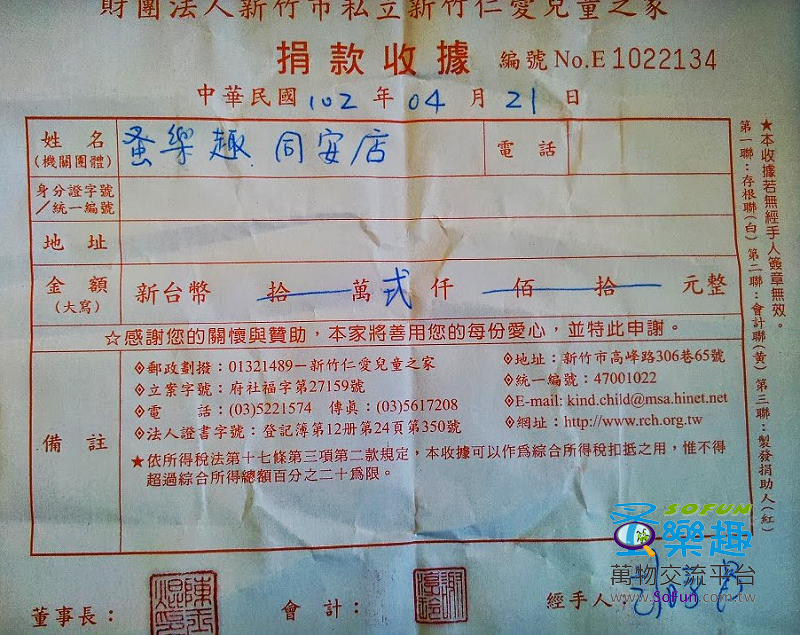 財團法人新竹市私立新竹仁愛兒童之家
捐款收據 編號 No.E 1022134
中華民國 102 年 04 月 21 日
姓名 蚤樂趣 同安店 電話
(機關團體)
身分證字號
/統一編號
地址
金額 新台幣 拾 萬 弍 仟 佰 拾 元整
(大寫)
☆感謝您的關懷與贊助,本家將善用您的每份愛心,並特此申謝。
備註
◇郵政劃撥:01321489-新竹仁愛兒童之家
◇立案字號:府社福字第27159號
◇電 話:(03)5221574 傳眞:(03)5617208
◇法人證書字號:登記簿第12册第24頁第350號
◇地址:新竹市高峰路306巷65號
◇統一編號:47001022
◇E-mail: kind.child@msa.hinet.net
◇網址:http://www.rch.org.tw
★依所得稅法第十七條第三項第二款規定,本收據可以作爲綜合所得稅扣抵之用,惟不得
超過綜合所得總額百分之二十爲限。
★本收據若無經手人簽章無效。
第一聯:存根聯(白) 第二聯:會計聯(黃) 第三聯:製發捐助人(紅)
董事長:
會計:
經手人:
SOFUN
蚤樂趣
萬物交流平台
www.SoFun.com.tw